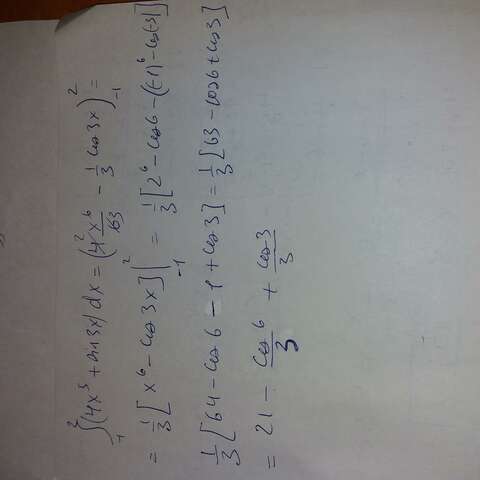 ∫₋₁² (4x⁵ + sin3x) dx = (4̸² x⁶/6̸3 − 1/3 cos 3x)₋₁² =
= 1/3 [x⁶ − cos 3x] |₋₁² = 1/3 [2⁶ − cos 6 − ((−1)⁶ − cos(−3))]
1/3 [64 − cos 6 − 1 + cos 3] = 1/3 [63 − cos 6 + cos 3]
= 21 − cos 6/3 + cos 3/3